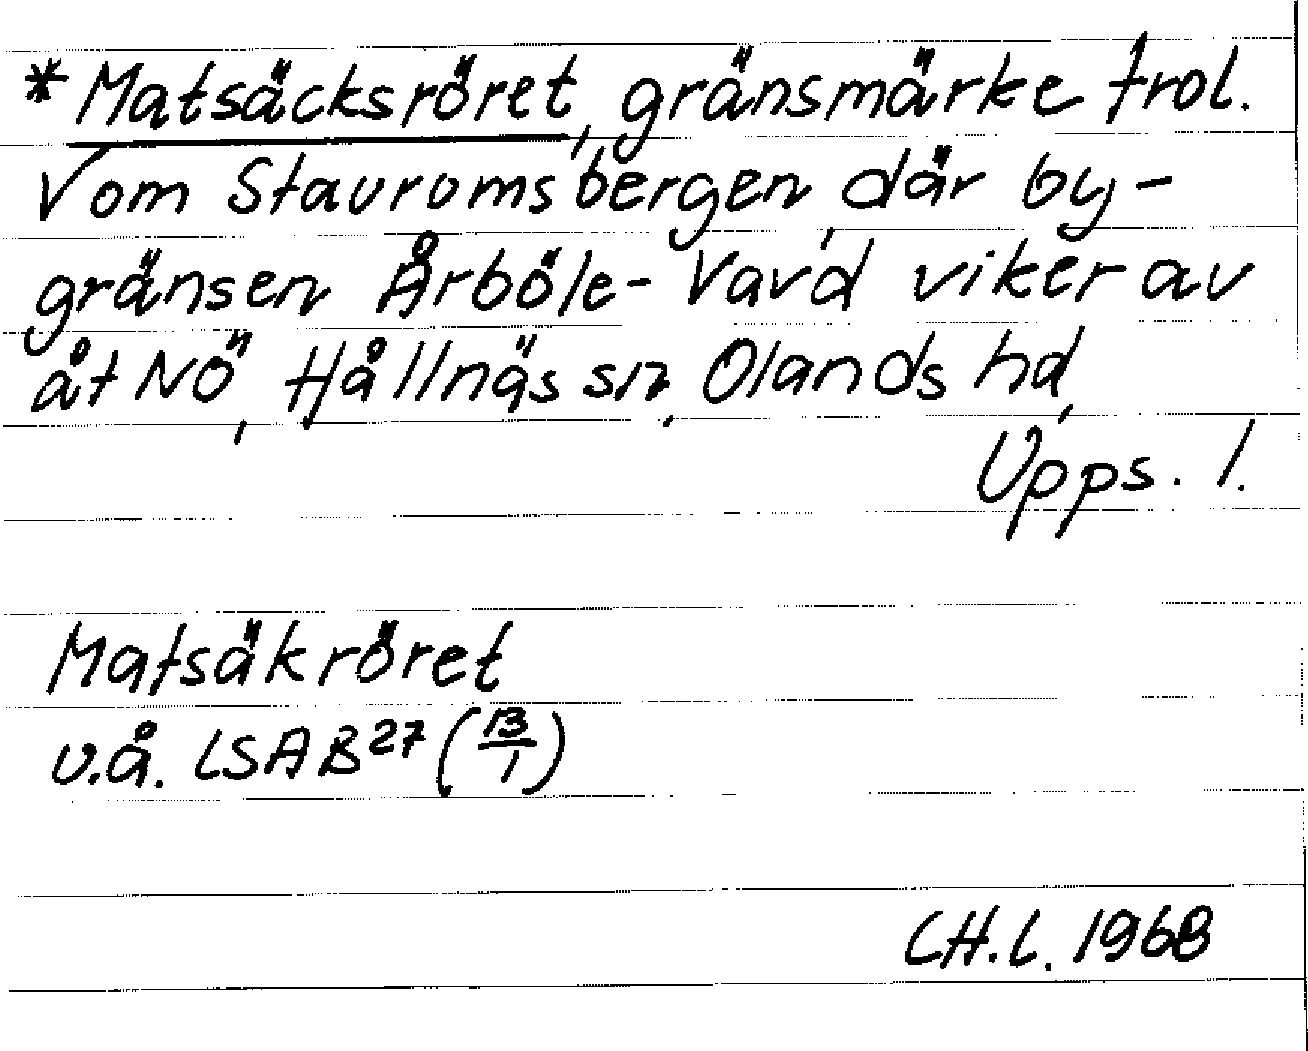 *Matsäcksröret, gränsmärke trol.
V om Stavromsbergen, där by-
gränsen Årböle-Vavd viker av
åt NÖ, Hållnäs sn, Olands hd,
Upps. l.
Matsäkröret
u.å. LSAB27 (13/1)
CH.L. 1968